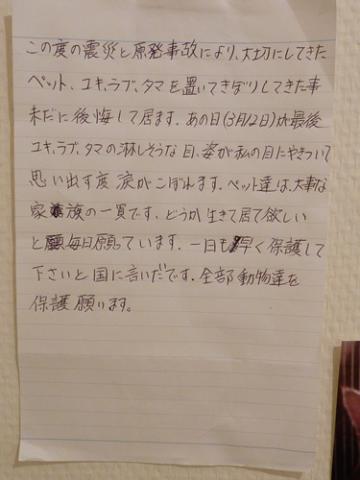 この度の震災と原発事故により、大切にしてきた
ペット、ユキ、ラブ、タマを置いてきぼりしてきた事
未だに後悔して居ます。あの日(3月12日)が最後
ユキ、ラブ、タマの淋しそうな目、姿が私の目にやきついて
思い出す度涙がこぼれます。ペット達は、大事な
家族の一員です。どうか生きて居て欲しい
と毎日願っています。一日も早く保護して
下さいと国に言いたです。全部動物達を
保護願います。